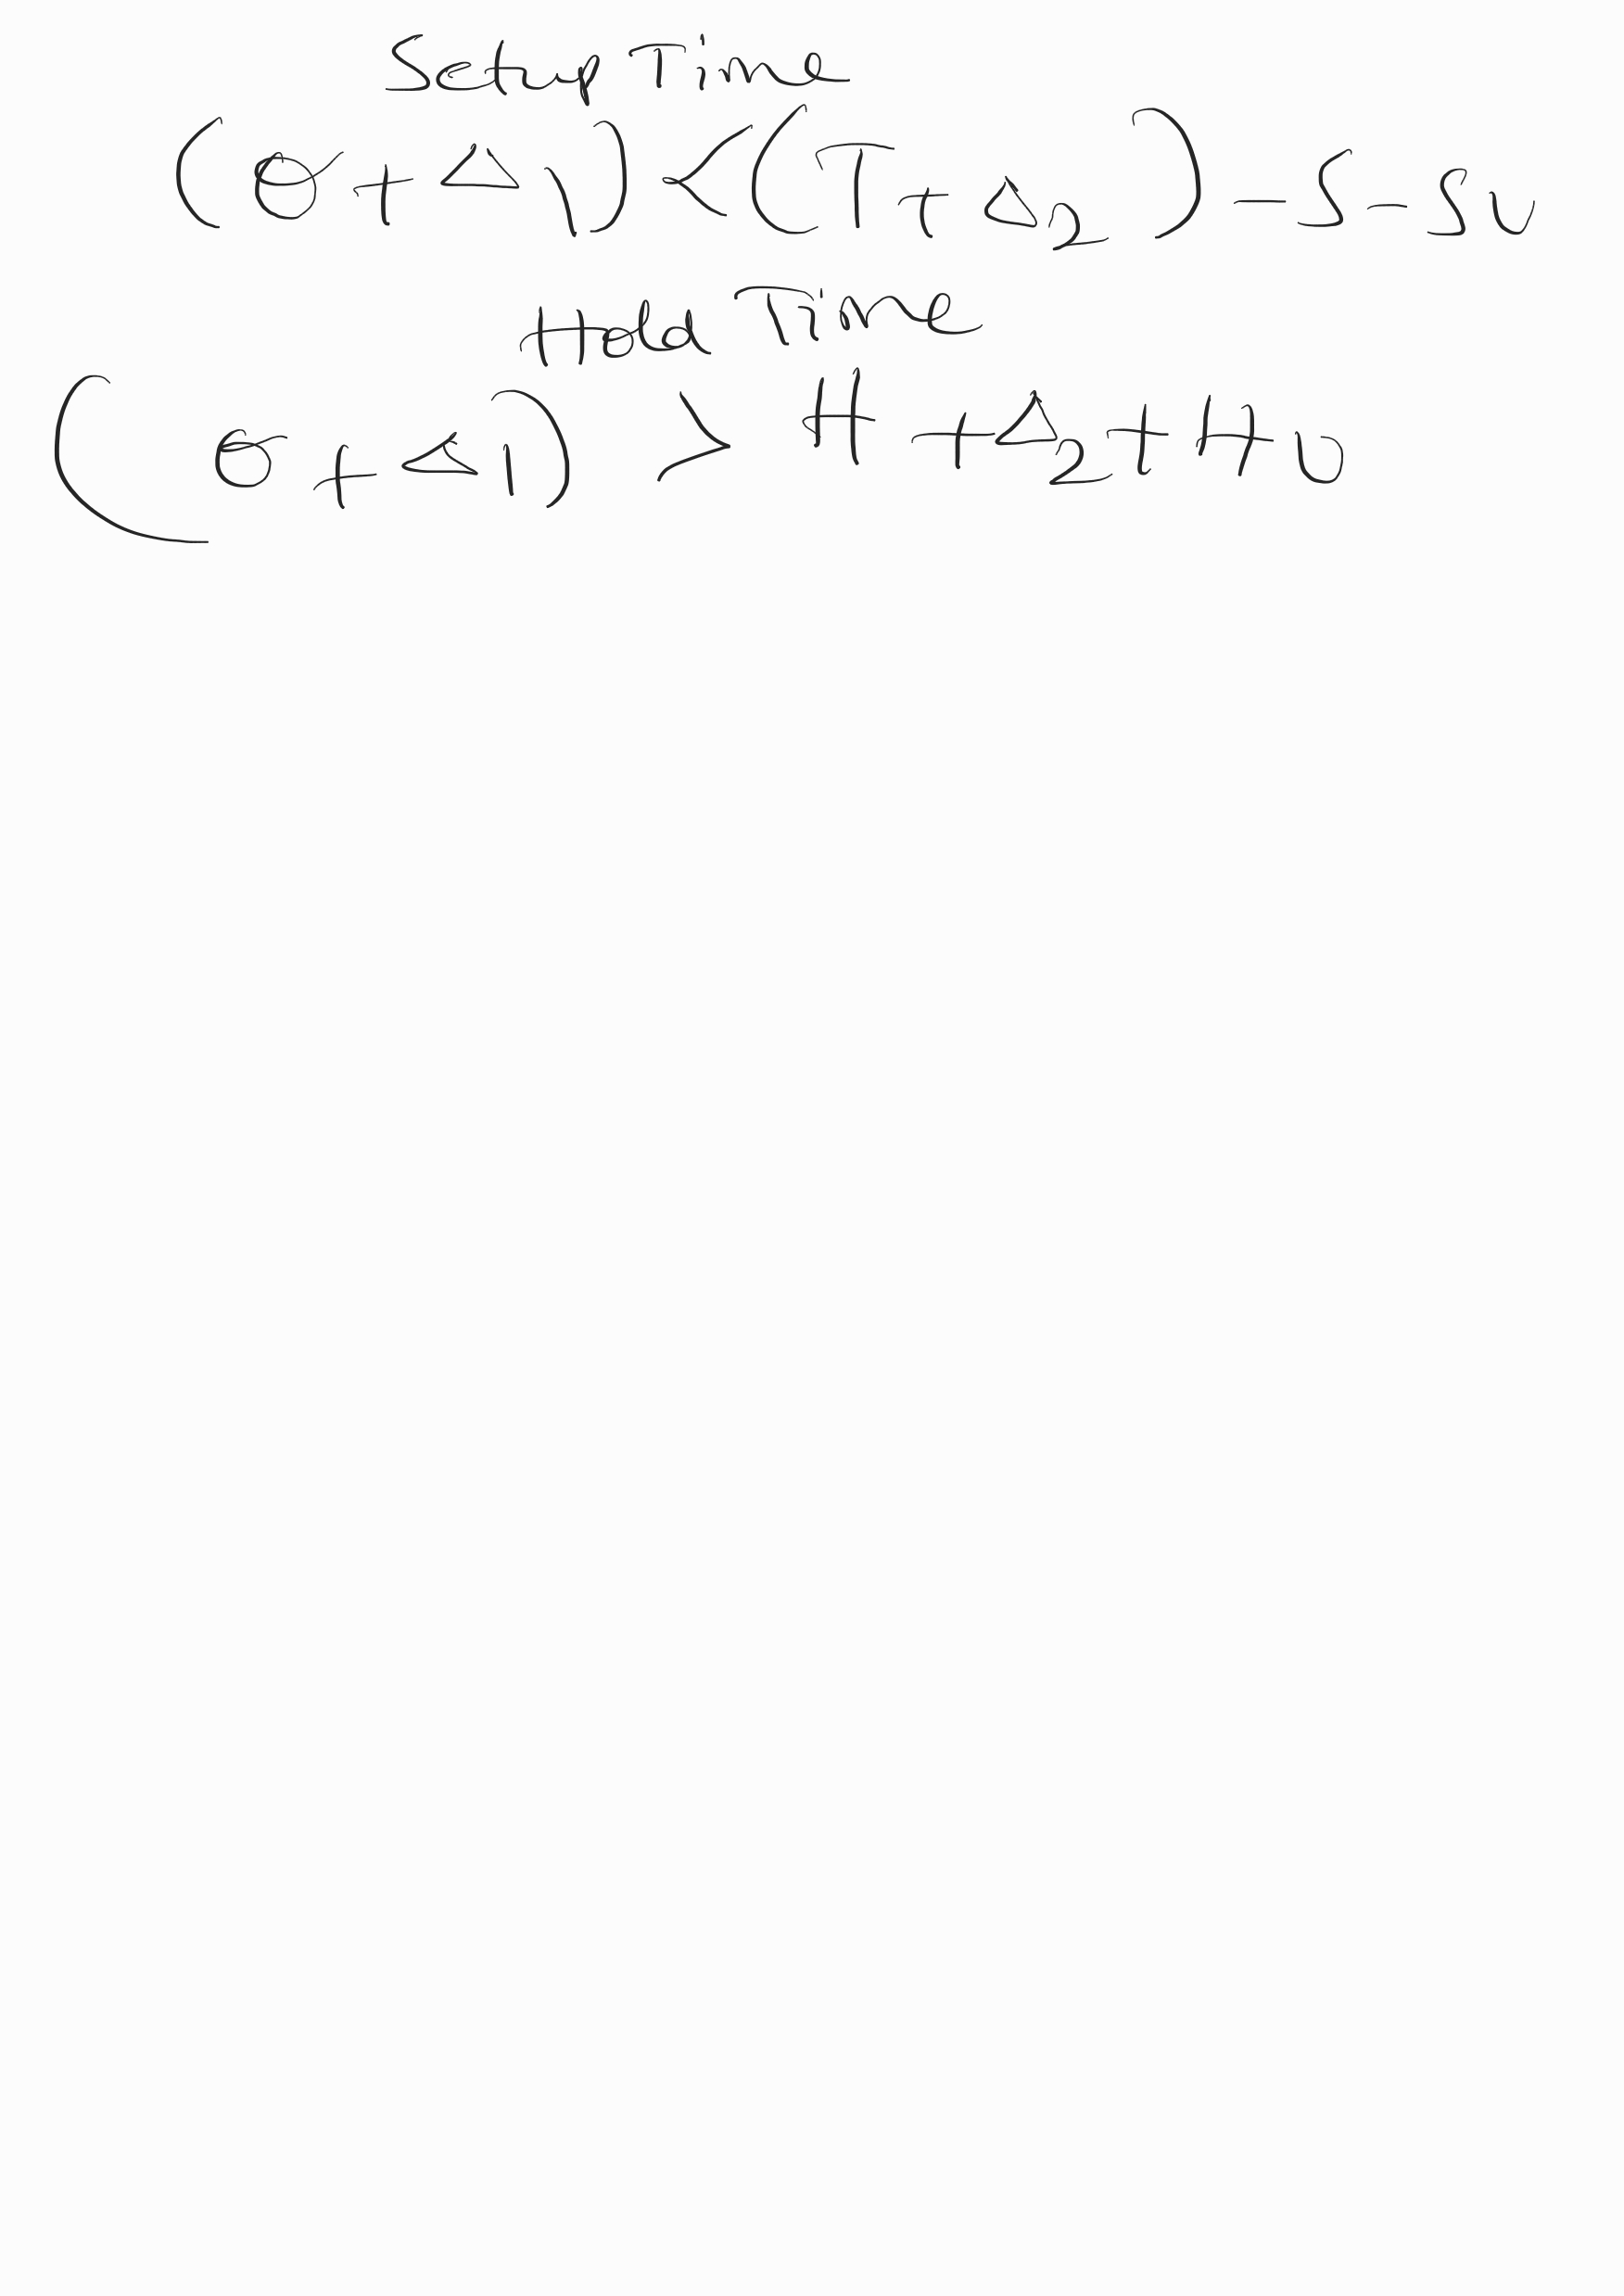 Setup Time
(θ + Δ1) < (T + Δ2) - S - SU
Hold Time
(θ + Δ1) > H + Δ2 + HU